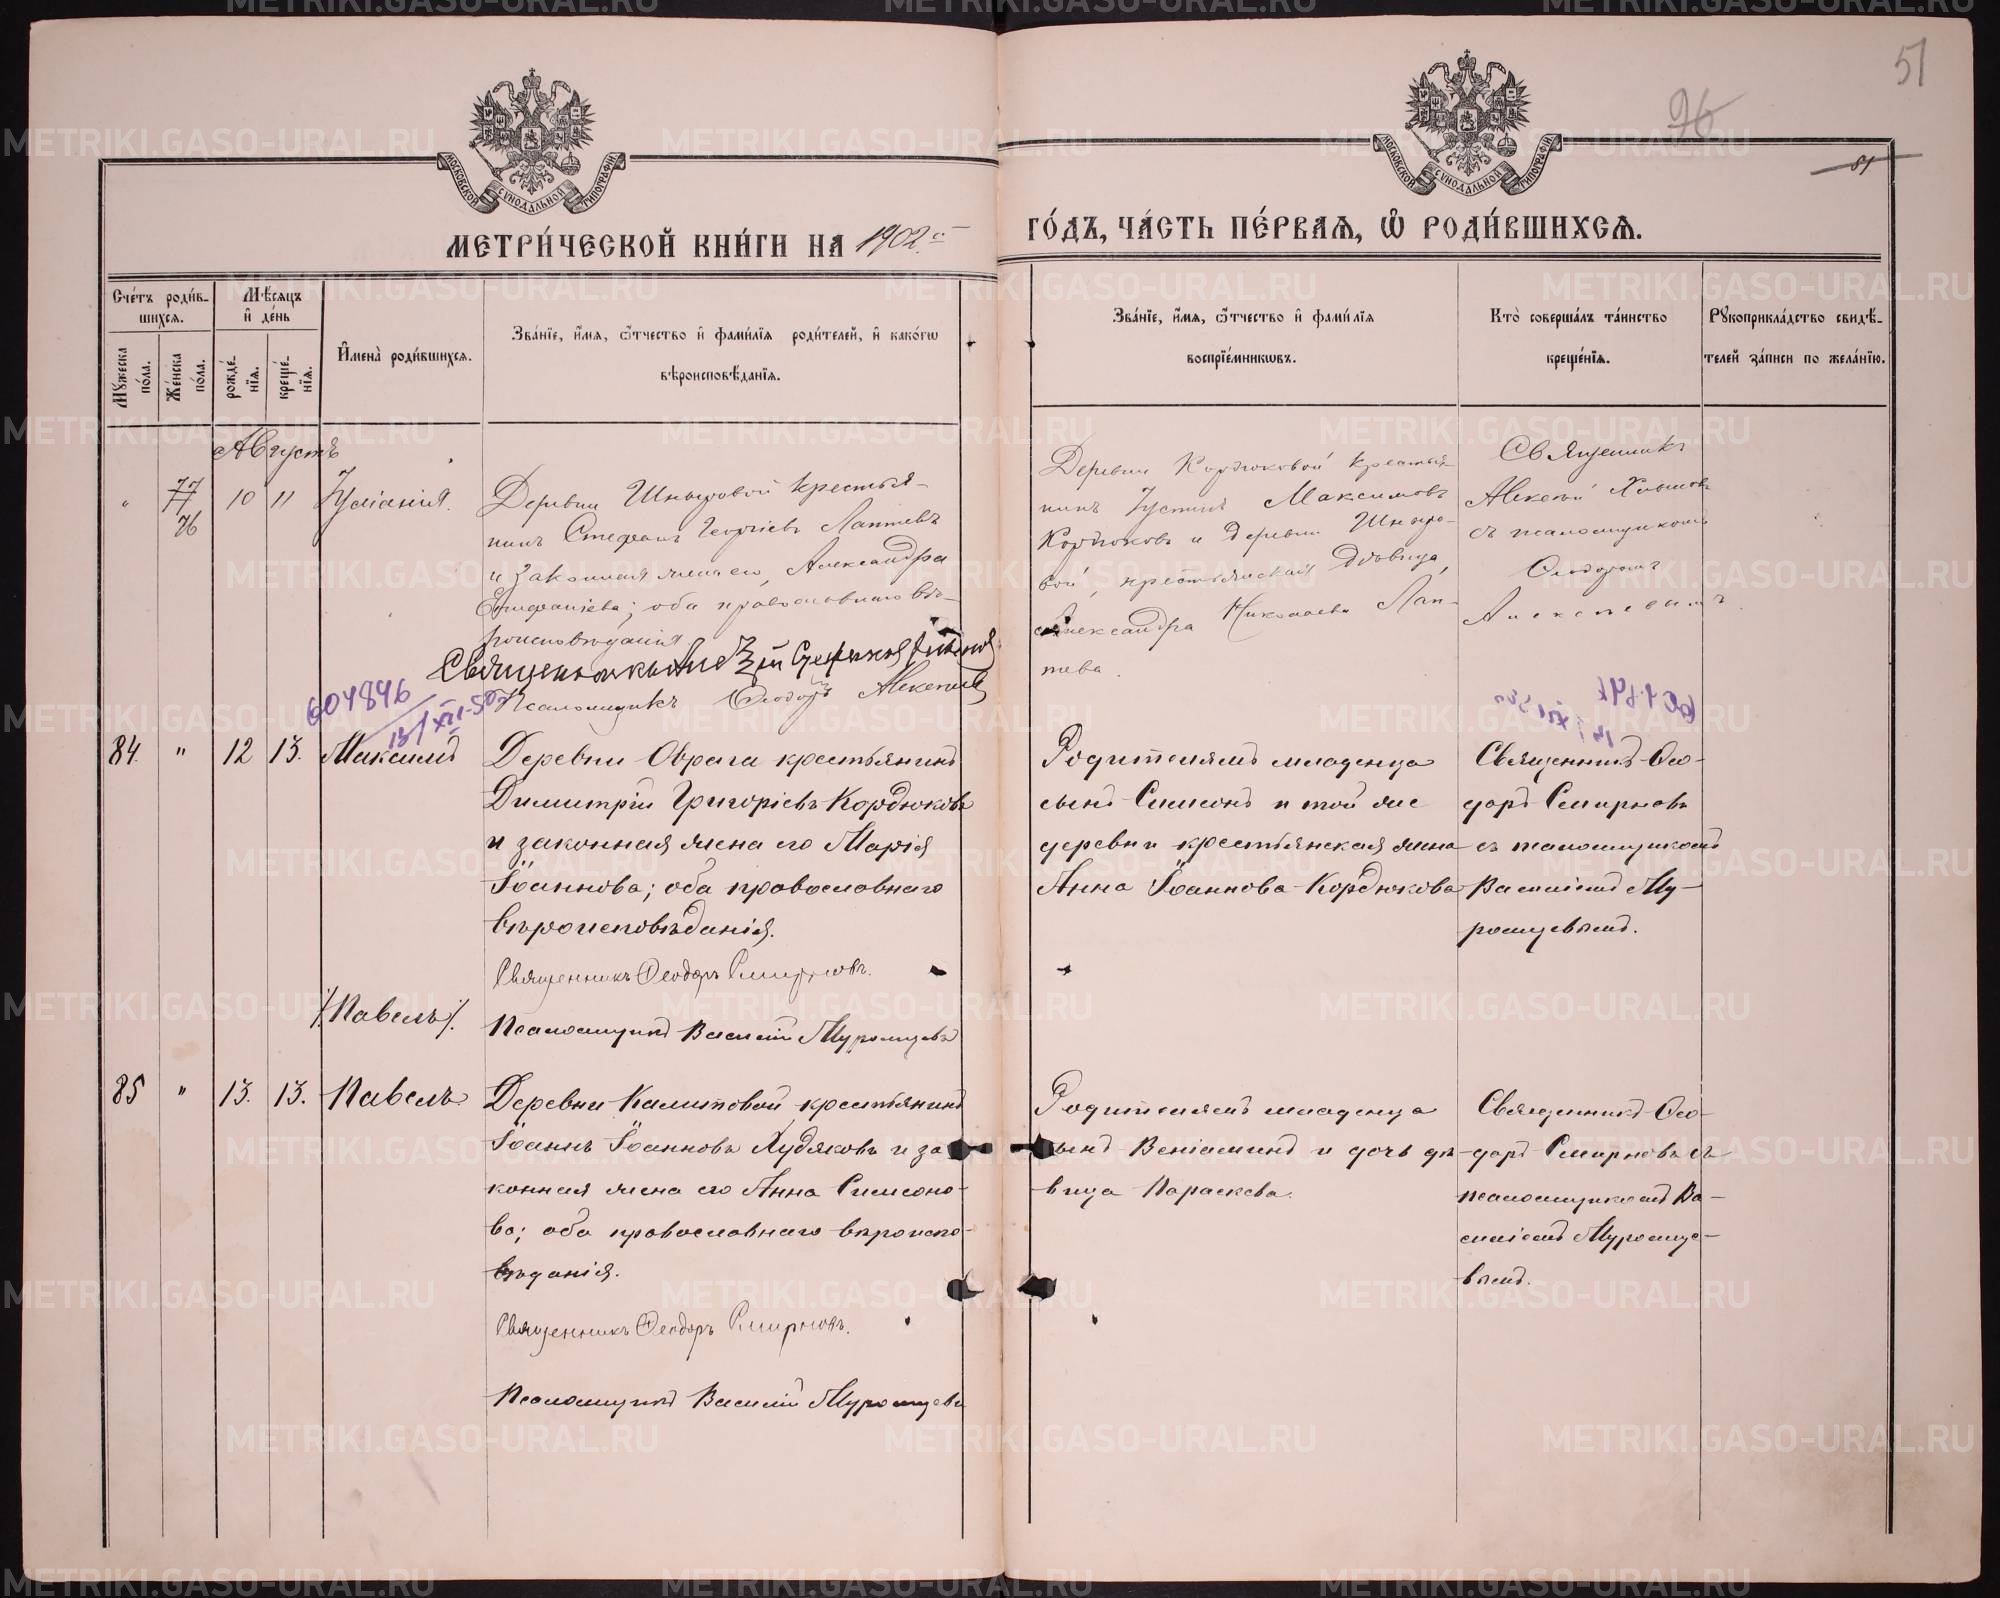 51
26
81
МОСКОВСКОЙ СѴНОДАЛЬНОЙ ТИПОГРАФІИ
МОСКОВСКОЙ СѴНОДАЛЬНОЙ ТИПОГРАФІИ
МЕТРИ́ЧЕСКОЙ КНИ́ГИ НА 1902й
ГО́ДЪ, ЧА́СТЬ ПЕ́РВАѦ, Ѽ РОДИ́ВШИХСѦ.
Сче́тъ роди́в-
шихсѧ.
Мѣ́сѧцъ
и҆ де́нь
Мꙋ́жеска
по́ла.
Же́нска
по́ла.
рожде́-
нїѧ.
креще́-
нїѧ.
И҆мена̀ роди́вшихсѧ.
Зва́нїе, и҆́мѧ, ѻ҆́тчество и҆ фами́лїѧ роди́телей, и҆ како́гѡ
вѣроисповѣ́данїѧ.
Зва́нїе, и҆́мѧ, ѻ҆́тчество и҆ фами́лїѧ
воспрїе́мникѡвъ.
Кто̀ соверша́лъ та́инство
креще́нїѧ.
Рꙋкоприкла́дство свидѣ́-
телей за́писи по жела́нїю.
Августъ
"
77
76
10
11
Іуліанія.
Деревни Шныровой крестья-
нинъ Стефанъ Георгіевъ Лаптевъ
и законная жена его, Александра
Епифаніева; оба православнаго вѣ-
роисповѣданія.
Псаломщикъ Ѳеодоръ Алексѣевъ
Деревни Кордюковой крестья-
нинъ Іустинъ Максимовъ
Кордюковъ и деревни Шныро-
вой, крестьянская дѣвица,
Александра Николаева Лап-
тева.
Священникъ
Алексѣй
съ псаломщикомъ
Ѳеодоромъ
Алексѣевымъ.
604846
13/XII-50г
84.
"
12
13.
Максимъ
Деревни Оврага крестьянинъ
Димитрій Григоріевъ Кордюковъ
и законная жена его Марія
Іоаннова; оба православнаго
вѣроисповѣданія.
Священникъ Ѳеодоръ Смирновъ.
Псаломщикъ Василій Муромцевъ
Родителямъ младенца
сынъ Симеонъ и той же
деревни крестьянская жена
Анна Іоаннова Кордюкова
Священникъ Ѳео-
доръ Смирновъ
съ псаломщикомъ
Василіемъ Му-
ромцевымъ.
/.Павелъ/.
85
"
13.
13.
Павелъ.
Деревни Калитовой крестьянинъ
Іоаннъ Іоанновъ Худяковъ и за
конная жена его Анна Симеоно-
ва; оба православнаго вѣроиспо-
вѣданія.
Священникъ Ѳеодоръ Смирновъ.
Псаломщикъ Василій Муромцевъ
Родителямъ младенца
сынъ Веніаминъ и дочь дѣ-
вица Параскева.
Священникъ Ѳео-
доръ Смирновъ съ
псаломщикомъ Ва-
силіемъ Муромце-
вымъ.
METRIKI.GASO-URAL.RU